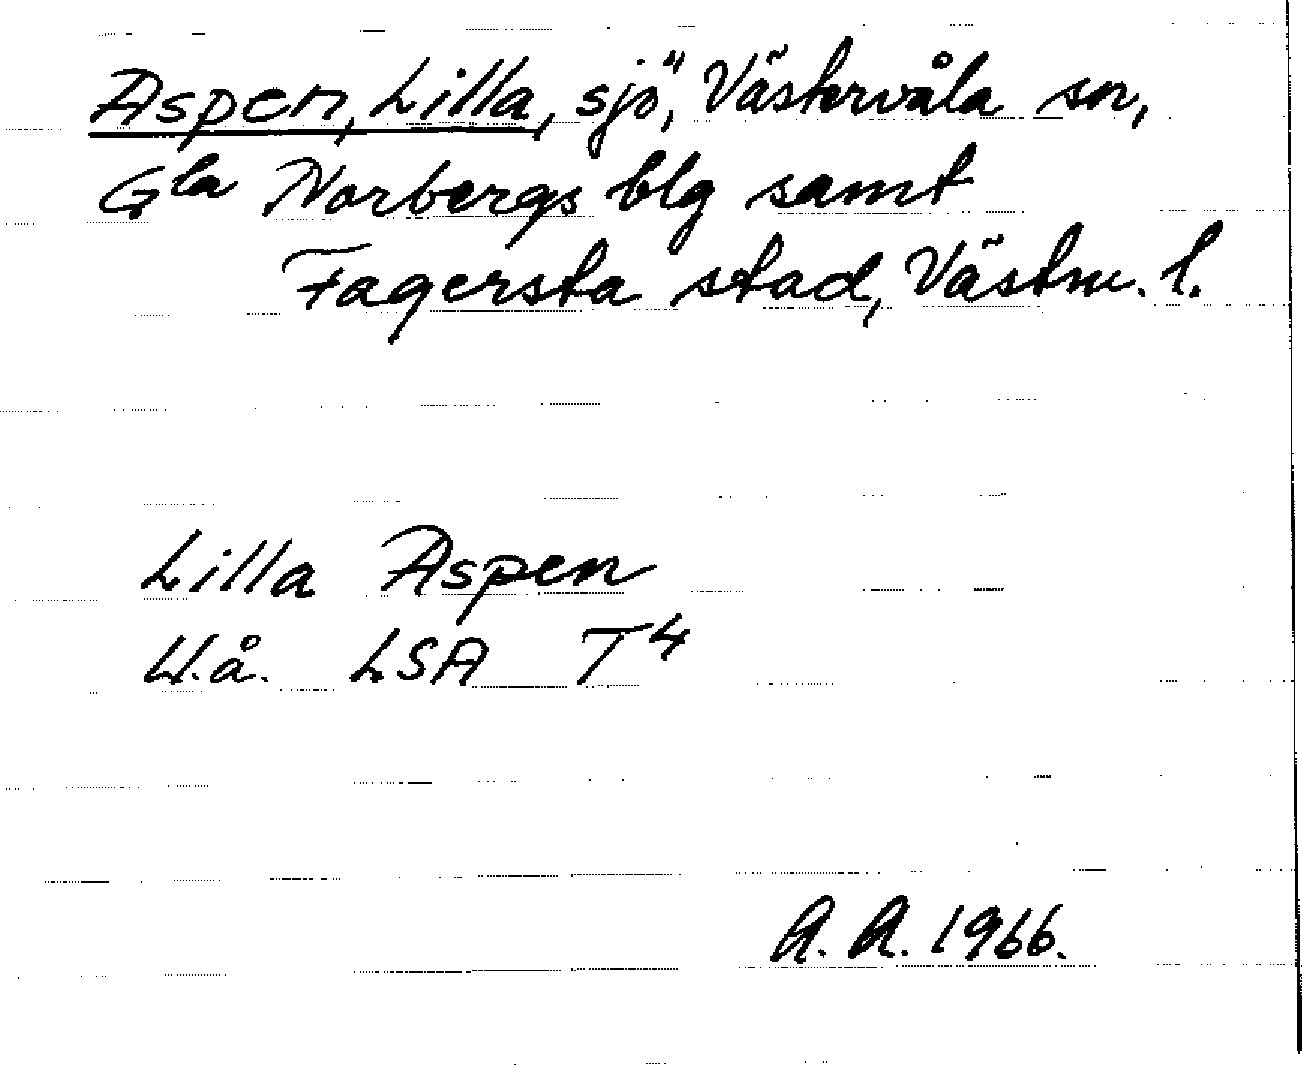 Aspen, Lilla, sjö, Västervåla sn,
Gla Norbergs blg samt
Fagersta stad, Västm. l.
Lilla Aspen
U.å. LSA T4
A. A. 1966.